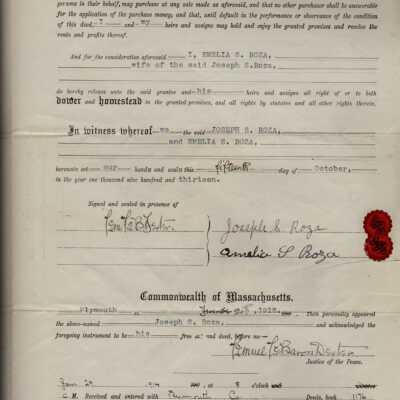 persons in their behalf, may purchase at any sale made as aforesaid, and that no other purchaser shall be answerable
for the application of the purchase money, and that, until default in the performance or observance of the condition
of this deed, I and my heirs and assigns may hold and enjoy the granted premises and receive the
rents and profits thereof.
And for the consideration aforesaid I, EMELIA S. ROZA,
wife of the said Joseph S. Roza,
do hereby release unto the said grantee and his heirs and assigns all right of or to both
dower and homestead in the granted premises, and all rights by statutes and all other rights therein.
In witness whereof we the said JOSEPH S. ROZA,
and EMELIA S. ROZA,
hereunto set our hands and seals this fifteenth day of October,
in the year one thousand nine hundred and thirteen.
Signed and sealed in presence of
Joseph S Roza
Amelia S Roza
Commonwealth of Massachusetts.
Plymouth 1913. Then personally appeared
the above-named Joseph S. Roza, and acknowledged the
foregoing instrument to be his free act and deed, before me
Lemuel LeBaron Dexter
Justice of the Peace.
at 8 o'clock
M. Received and entered with Plymouth Co. Deeds, book 1176